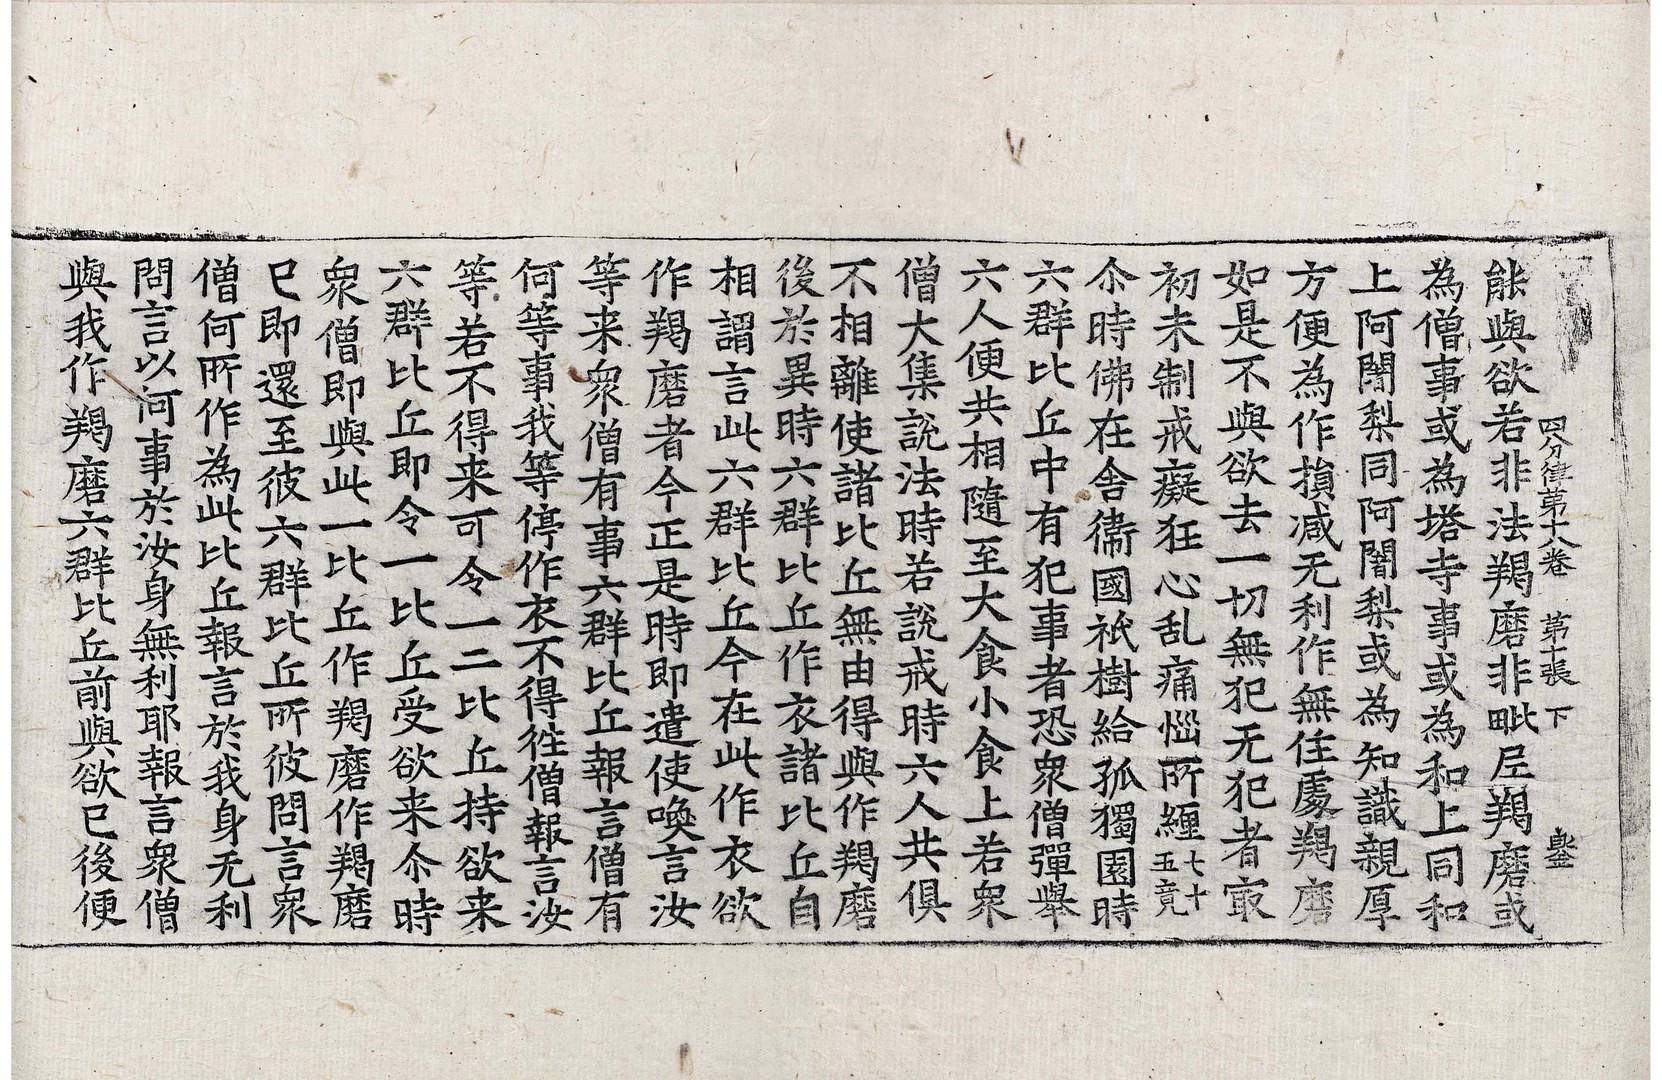 四分律第十八卷 第十張 下
能與欲若非法羯磨非毗尼羯磨或
為僧事或為塔寺事或為和上同和
上阿闍梨同阿闍梨或為知識親厚
方便為作損减无利作無住處羯磨
如是不與欲去一切無犯无犯者㝡
初未制戒癡狂心乱痛惱所纏七十五竟
尒時佛在舍衛國祇樹給孤獨園時
六群比丘中有犯事者恐眾僧彈舉
六人便共相隨至大食小食上若眾
僧大集說法時若說戒時六人共俱
不相離使諸比丘無由得與作羯磨
後於異時六群比丘作衣諸比丘自
相謂言此六群比丘今在此作衣欲
作羯磨者今正是時即遣使喚言汝
等来眾僧有事六群比丘報言僧有
何等事我等停作衣不得徃僧報言汝
等若不得来可令一二比丘持欲来
六群比丘即令一比丘受欲来尒時
眾僧即與此一比丘作羯磨作羯磨
已即還至彼六群比丘所彼問言眾
僧何所作為此比丘報言於我身无利
問言以何事於汝身無利耶報言眾僧
與我作羯磨六群比丘前與欲已後便